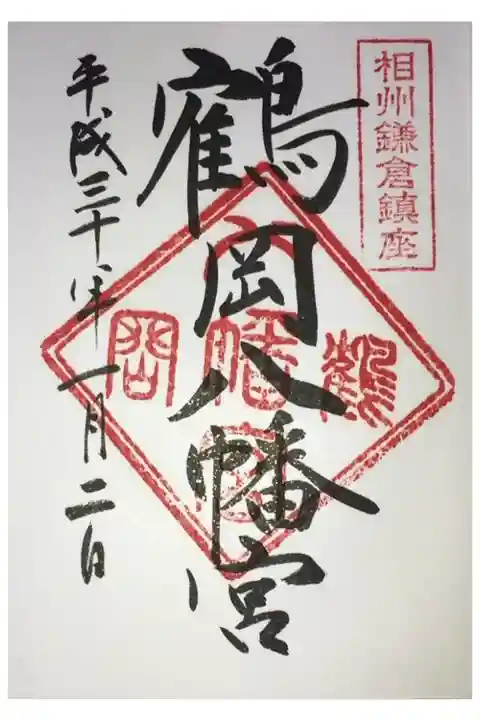 相州鎌倉鎮座
鶴岡八幡宮
鶴岡
八幡宮
平成三十年一月二日